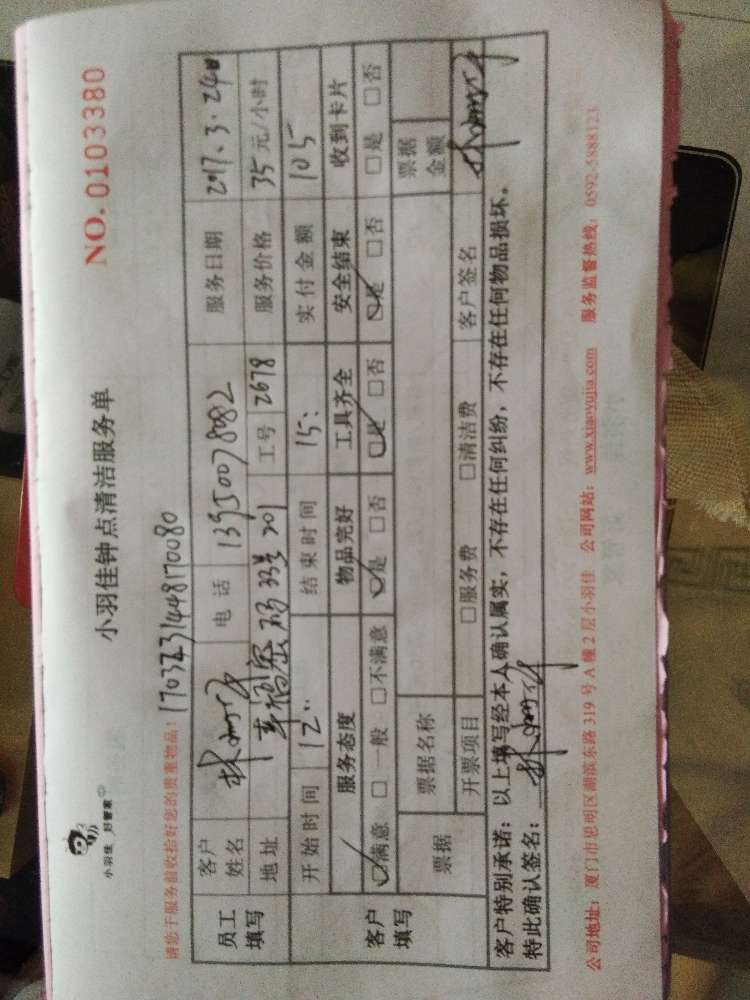 小羽佳 好管家
小羽佳钟点清洁服务单
NO. 0103380
请您于服务前收拾好您的贵重物品！ 1703231448170080
员工填写
客户姓名 电话 13950078082 服务日期 2017.3.24日
地址 幸福密码33号201 工号 2678 服务价格 35元/小时
开始时间 12: 结束时间 15: 实付金额 105
客户填写
服务态度 物品完好 工具齐全 安全结束 收到卡片
☑满意 □一般 □不满意 ☑是 □否 ☑是 □否 ☑是 □否 □是 □否
票据 票据名称 票据金额
开票项目 □服务费 □清洁费 客户签名
客户特别承诺：以上填写经本人确认属实，不存在任何纠纷，不存在任何物品损坏。
特此确认签名：
公司地址：厦门市思明区湖滨东路319号A幢2层小羽佳 公司网站：www.xiaoyujia.com 服务监督热线：0592-5888123